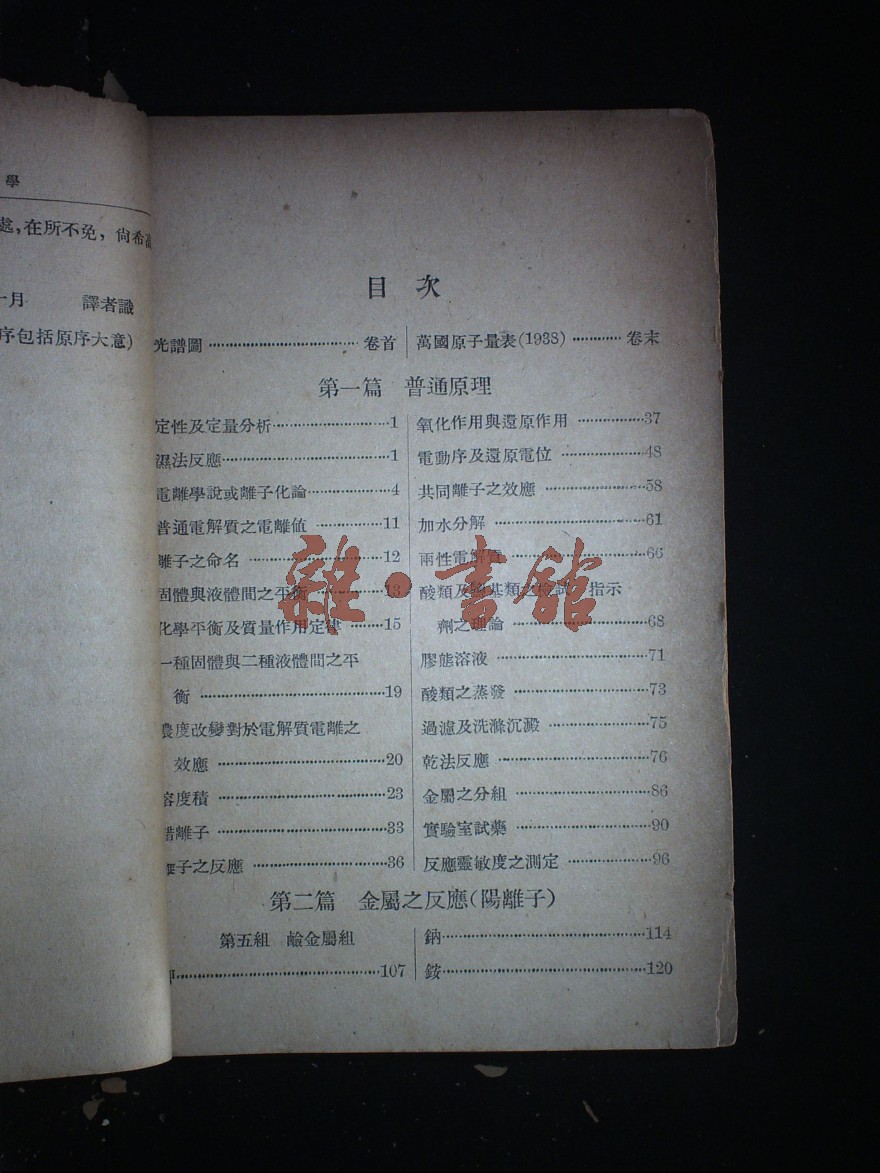 學
處,在所不免,尙希
一月 譯者識
序包括原序大意)
目次
光譜圖……………………………卷首
萬國原子量表(1938)…………卷末
第一篇 普通原理
定性及定量分析……………………1
濕法反應……………………………1
電離學說或離子化論………………4
普通電解質之電離値……………11
離子之命名………………………12
固體與液體間之平衡……………13
化學平衡及質量作用定律………15
一種固體與二種液體間之平
衡…………………………………19
濃度改變對於電解質電離之
效應………………………………20
溶度積……………………………23
錯離子……………………………33
離子之反應………………………36
氧化作用與還原作用……………37
電動序及還原電位………………48
共同離子之效應…………………58
加水分解…………………………61
兩性電解質………………………66
酸類及鹽基類之檢試,指示
劑之理論…………………………68
膠態溶液…………………………71
酸類之蒸發………………………73
過濾及洗滌沉澱…………………75
乾法反應…………………………76
金屬之分組………………………86
實驗室試藥………………………90
反應靈敏度之測定………………96
第二篇 金屬之反應(陽離子)
第五組 鹼金屬組
鉀…………………………………107
鈉…………………………………114
銨…………………………………120
雜·書館